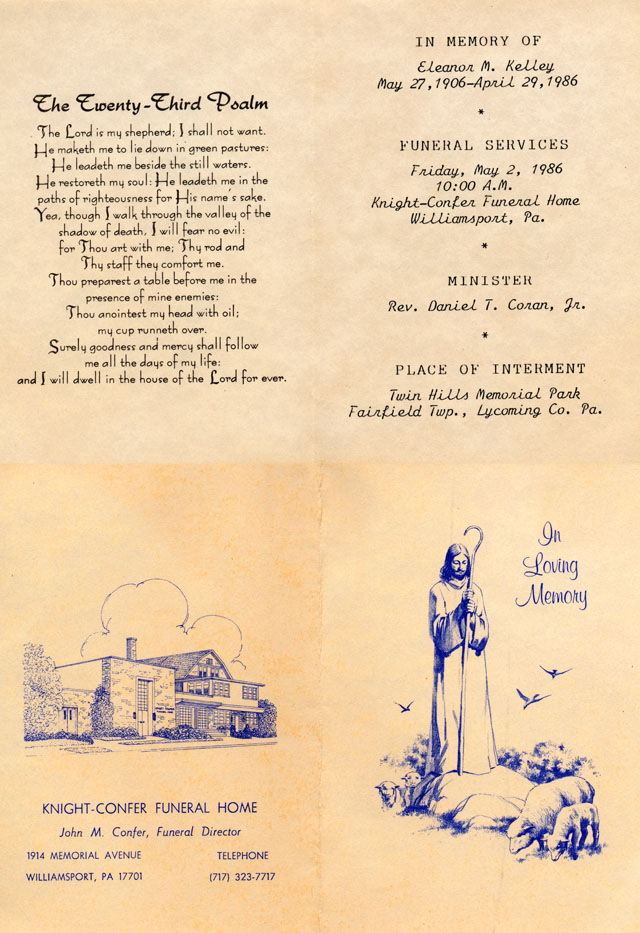 The Twenty-Third Psalm
The Lord is my shepherd; I shall not want.
He maketh me to lie down in green pastures:
He leadeth me beside the still waters.
He restoreth my soul: He leadeth me in the
paths of righteousness for His name's sake.
Yea, though I walk through the valley of the
shadow of death, I will fear no evil:
for Thou art with me; Thy rod and
Thy staff they comfort me.
Thou preparest a table before me in the
presence of mine enemies:
Thou anointest my head with oil;
my cup runneth over.
Surely goodness and mercy shall follow
me all the days of my life:
and I will dwell in the house of the Lord for ever.
IN MEMORY OF
Eleanor M. Kelley
May 27,1906-April 29,1986
*
FUNERAL SERVICES
Friday, May 2, 1986
10:00 A.M.
Knight-Confer Funeral Home
Williamsport, Pa.
*
MINISTER
Rev. Daniel T. Coran, Jr.
*
PLACE OF INTERMENT
Twin Hills Memorial Park
Fairfield Twp., Lycoming Co. Pa.
KNIGHT-CONFER FUNERAL HOME
John M. Confer, Funeral Director
1914 MEMORIAL AVENUE TELEPHONE
WILLIAMSPORT, PA 17701 (717) 323-7717
In
Loving
Memory